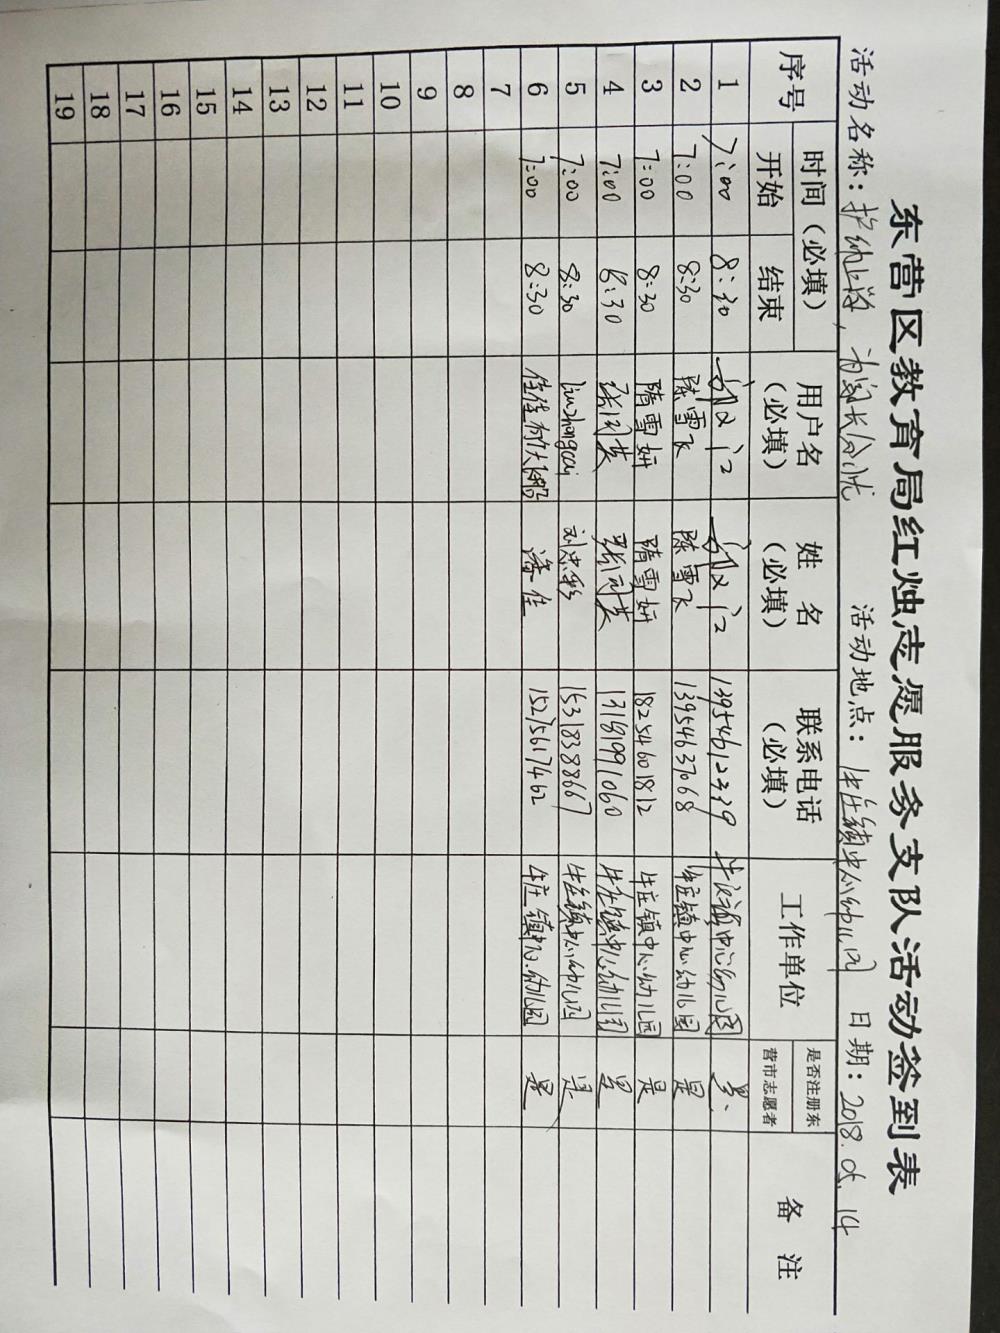 东营区教育局红烛志愿服务支队活动签到表
活动名称：护幼上学，为家长分忧 活动地点：牛庄镇中心幼儿园 日期：2018.05.14
序号 时间（必填） 用户名（必填） 姓名（必填） 联系电话（必填） 工作单位 是否注册东营市志愿者 备注
开始 结束
1 7:00 8:30 13954612339 中心幼儿园 是
2 7:00 8:30 陈雪飞 陈雪飞 13954637068 牛庄镇中心幼儿园 是
3 7:00 8:30 隋雪妍 隋雪妍 18254601812 牛庄镇中心幼儿园 是
4 7:00 8:30 张闫英 张闫英 13181991060 牛庄镇中心幼儿园 是
5 7:00 8:30 liuzhongcai 刘忠彩 15318388667 牛庄镇中心幼儿园 是
6 7:00 8:30 潘佳 15275617462 牛庄镇中心幼儿园 是
7
8
9
10
11
12
13
14
15
16
17
18
19